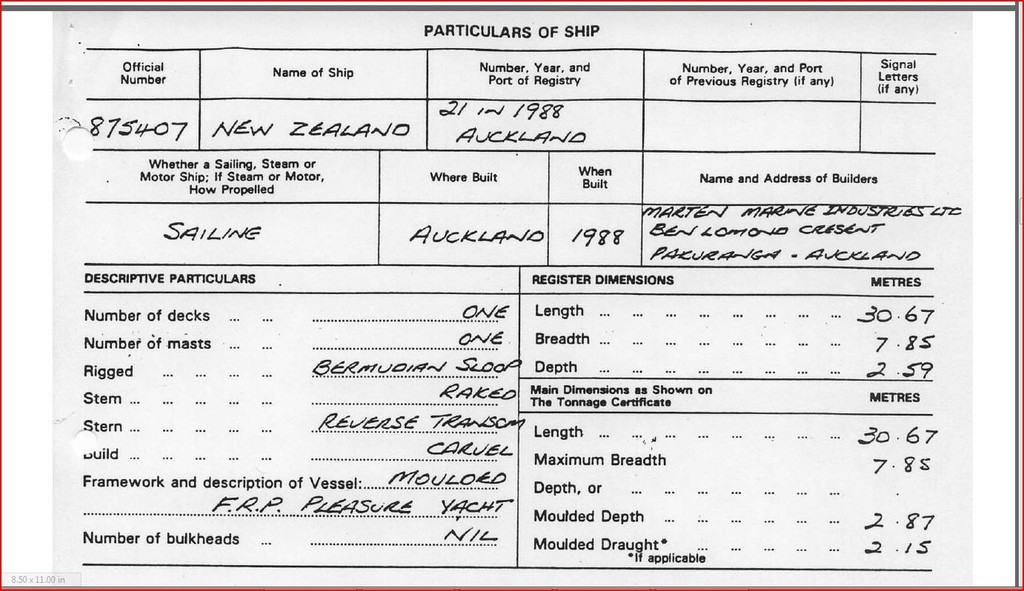 PARTICULARS OF SHIP
Official Number
Name of Ship
Number, Year, and Port of Registry
Number, Year, and Port of Previous Registry (if any)
Signal Letters (if any)
875407
NEW ZEALAND
21 IN 1988
AUCKLAND
Whether a Sailing, Steam or Motor Ship; If Steam or Motor, How Propelled
Where Built
When Built
Name and Address of Builders
SAILING
AUCKLAND
1988
MARTEN MARINE INDUSTRIES LTC
BEN LOMOND CRESENT
PAKURANGA - AUCKLAND
DESCRIPTIVE PARTICULARS
Number of decks ... ... ONE
Number of masts ... ... ONE
Rigged ... ... ... ... BERMUDIAN SLOOP
Stem ... ... ... ... ... RAKED
Stern ... ... ... ... ... REVERSE TRANSOM
Build ... ... ... ... ... CARVEL
Framework and description of Vessel: MOULDED
F.R.P. PLEASURE YACHT
Number of bulkheads ... NIL
REGISTER DIMENSIONS METRES
Length ... ... ... ... ... ... ... ... 30.67
Breadth ... ... ... ... ... ... ... ... 7.85
Depth ... ... ... ... ... ... ... ... 2.59
Main Dimensions as Shown on The Tonnage Certificate METRES
Length ... ... ... ... ... ... ... ... 30.67
Maximum Breadth 7.85
Depth, or ... ... ... ... ... ... ...
Moulded Depth ... ... ... ... ... ... 2.87
Moulded Draught* ... ... ... ... ... 2.15
*If applicable
8.50 x 11.00 in